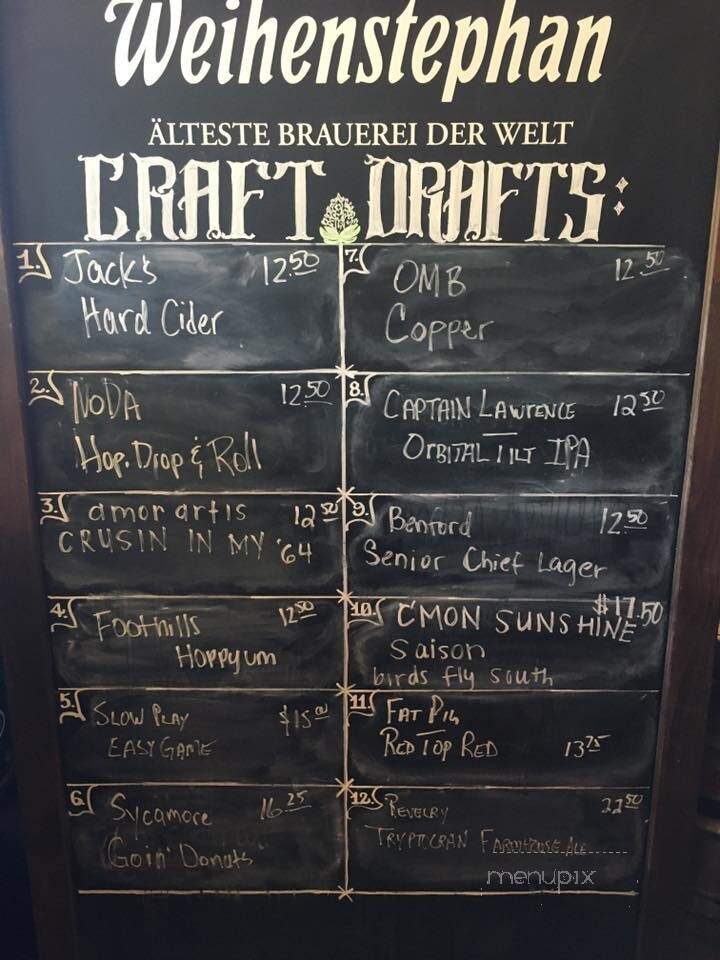 Weihenstephan
ÄLTESTE BRAUEREI DER WELT
CRAFT DRAFTS:
1. Jack's 12.50
Hard Cider
2. NoDA 12.50
Hop, Drop & Roll
3. amor artis 12.50
CRUSIN IN MY '64
4. Foothills 12.50
Hoppyum
5. SLOW PLAY $15.00
EASY GAME
6. Sycamore 16.25
Goin' Donuts
7. OMB 12.50
Copper
8. CAPTAIN LAWRENCE 12.50
ORBITAL TILT IPA
9. Benford 12.50
Senior Chief Lager
10. C'MON SUNSHINE $17.50
Saison
birds fly south
11. FAT PIG
RED TOP RED 13.75
12. REVELRY 22.50
FARMHOUSE ALE
menupix